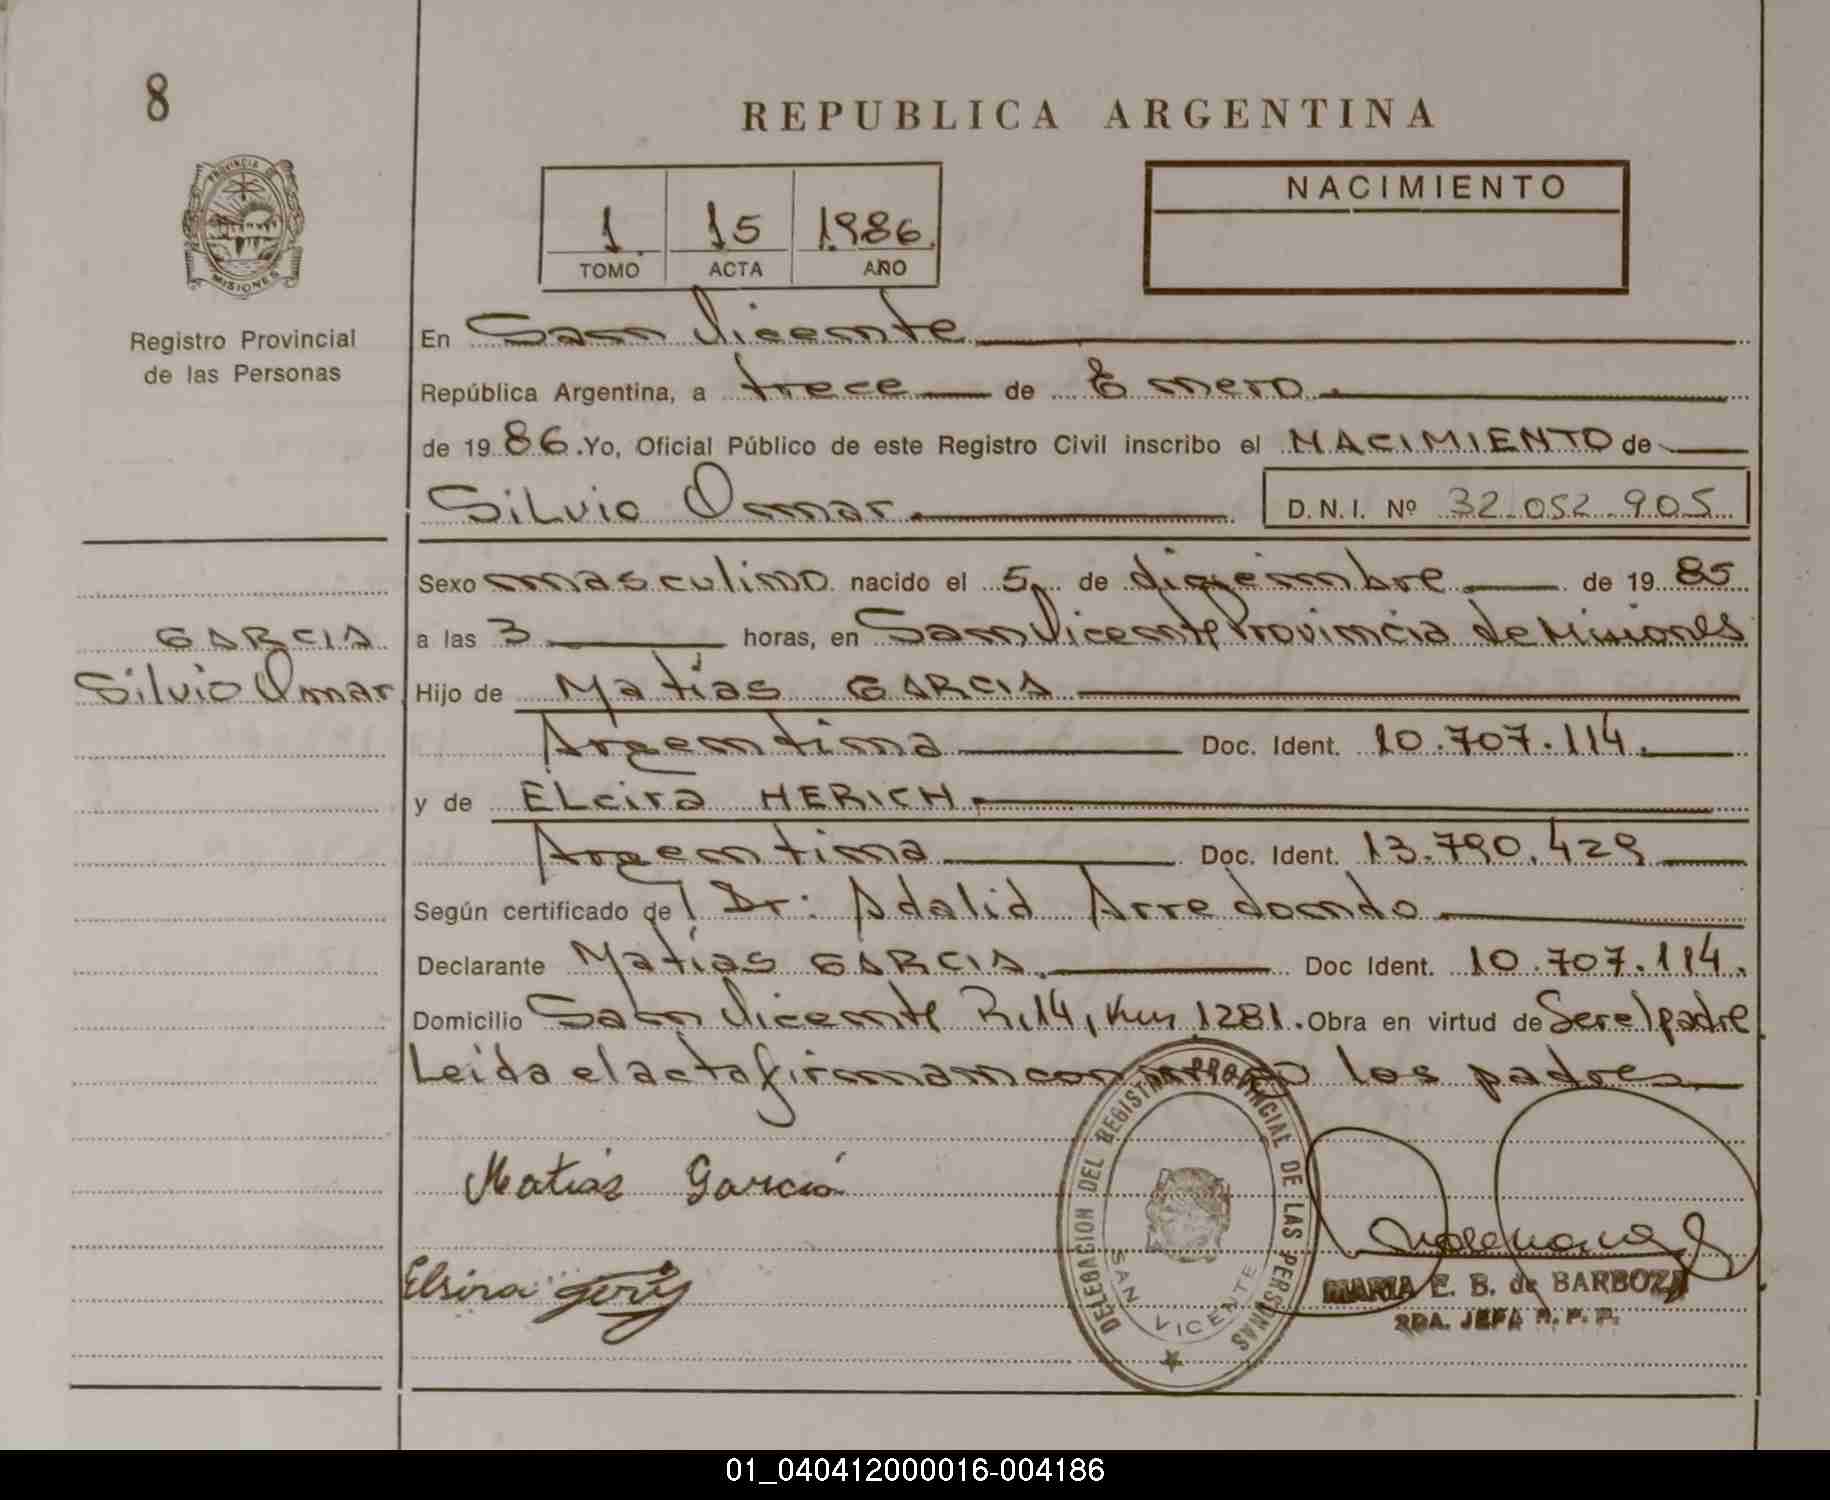 8
REPUBLICA ARGENTINA
PROVINCIA DE
MISIONES
Registro Provincial
de las Personas
1 15 1986.
TOMO ACTA AÑO
NACIMIENTO
En San Vicente
República Argentina, a trece de Enero.
de 1986. Yo, Oficial Público de este Registro Civil inscribo el NACIMIENTO de
Silvio Omar
D.N.I. Nº 32.052.905
GARCIA
Silvio Omar
Sexo masculino nacido el 5 de diciembre de 1985
a las 3 horas, en San Vicente Provincia de Misiones
Hijo de Matías GARCIA
Argentina Doc. Ident. 10.707.114.
y de ELcira HERICH.
Argentina Doc. Ident. 13.790.429
Según certificado de Dr: Adalid Arredondo
Declarante Matías GARCIA. Doc Ident. 10.707.114.
Domicilio San Vicente R.14, Km 1281. Obra en virtud de Ser el padre
Leida el acta firman conmigo los padres
Matias García
Elsira
DELEGACION DEL REGISTRO PROVINCIAL DE LAS PERSONAS
SAN VICENTE
MARIA E. B. de BARBOZA
2DA. JEFA R. P. P.
01_040412000016-004186